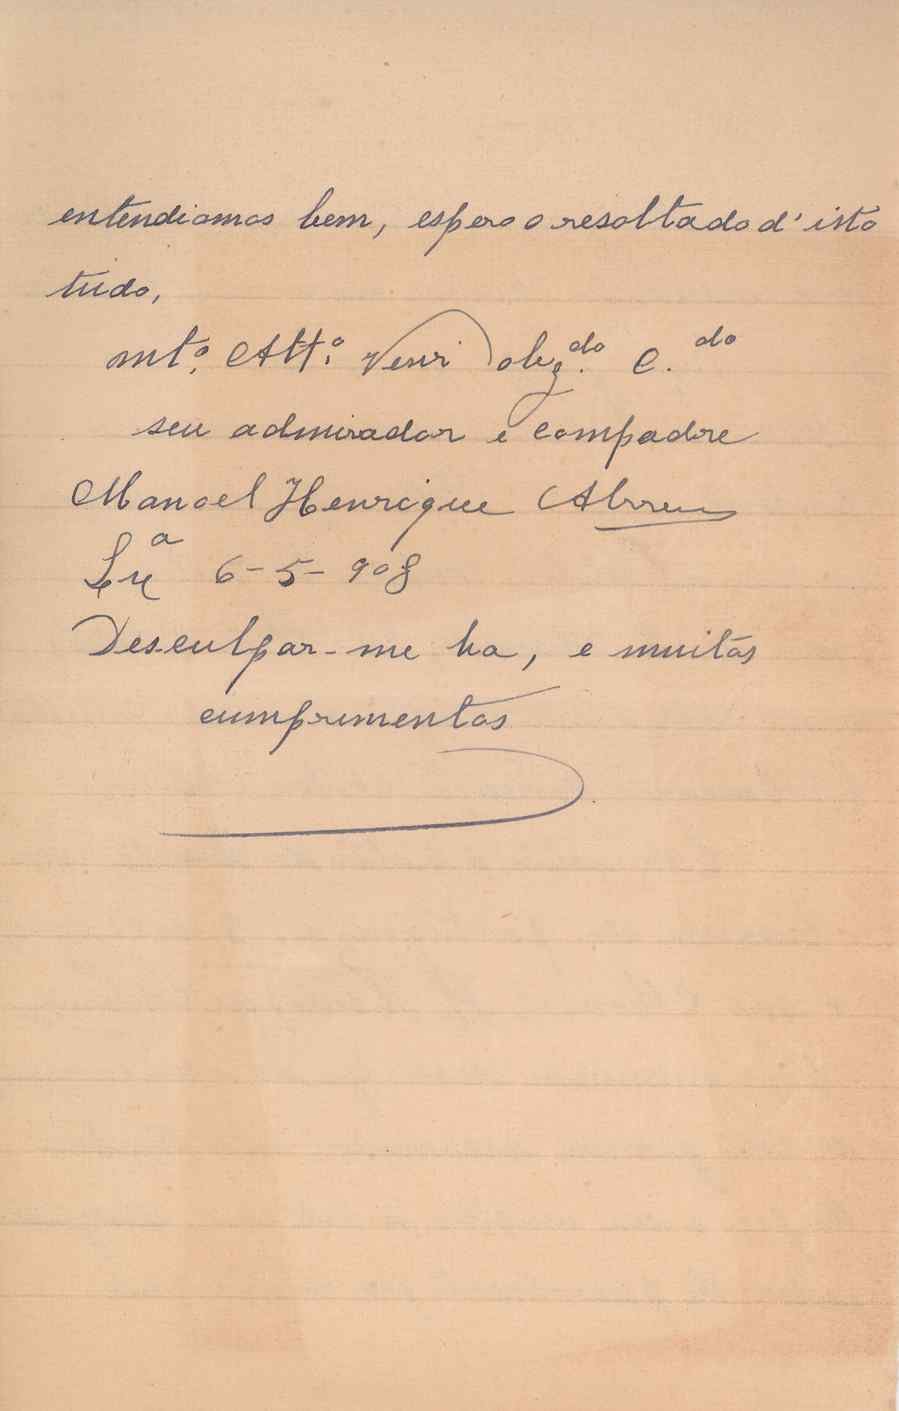 entendiamos bem, espero o resoltado d'isto
tudo,
mt.º Att.º Venr obg.do C.do
seu admirador e compadre
Manoel Henrique Abreu
Lx.a 6-5-908
Desculpar-me ha, e muitos
cumprimentos